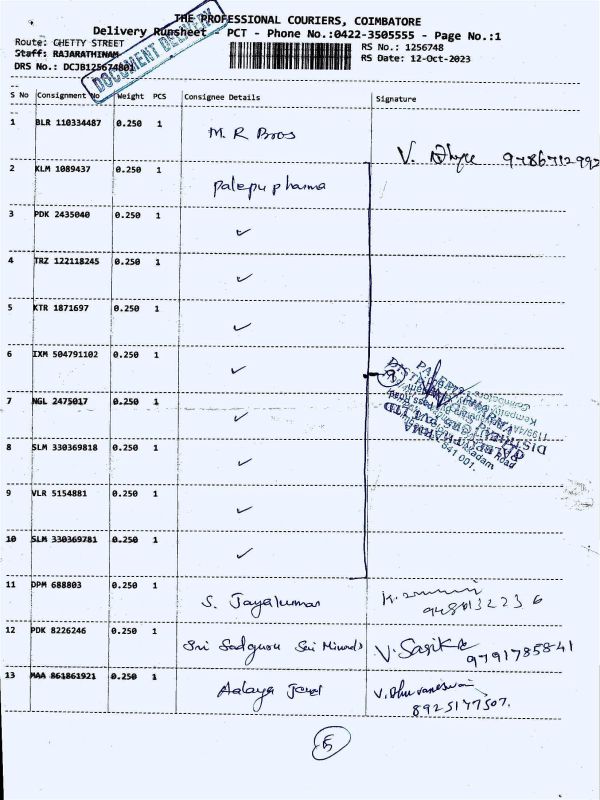 THE PROFESSIONAL COURIERS, COIMBATORE
Delivery Runsheet - PCT - Phone No.:0422-3505555 - Page No.:1
Route: CHETTY STREET
RS No.: 1256748
Staff: RAJARATHINAM
RS Date: 12-Oct-2023
DRS No.: DCJB125674801
DOCUMENT DELIVERY
S No Consignment No Weight PCS Consignee Details Signature
1 BLR 110334487 0.250 1 M. R Bros V. 9786712992
2 KLM 1089437 0.250 1 Palepu pharma
3 PDK 2435040 0.250 1 ✓
4 TRZ 122118245 0.250 1 ✓
5 KTR 1871697 0.250 1 ✓
6 IXM 504791102 0.250 1 ✓
9
7 NGL 2475017 0.250 1 ✓
8 SLM 330369818 0.250 1 ✓
9 VLR 5154881 0.250 1 ✓
10 SLM 330369781 0.250 1 ✓
11 DPM 688803 0.250 1 S. Jayakumar K.
12 PDK 8226246 0.250 1 Sri Sadguru Sai Minerals V. Sasika 9791785841
13 MAA 861861921 0.250 1 Aalaya Jewel V. Bhuvaneswari
8925177507.
5